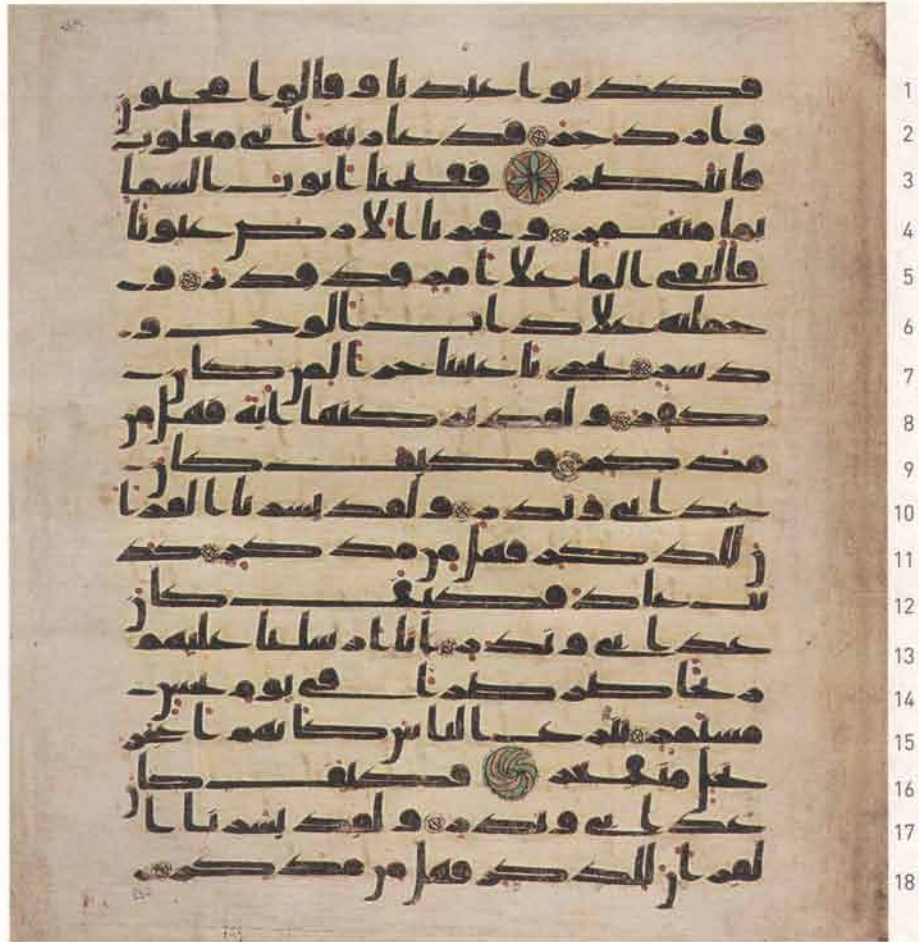 1 فكذبوا عبدنا وقالوا مجنون
2 وازدجر فدعا ربه انى مغلوب
3 فانتصر ففتحنا ابوب السما
4 بما منهمر وفجرنا الارض عيونا
5 فالتقى الما علا امر قد قدر و
6 حملنه علا ذات الوح و
7 دسر تجرى باعيننا جزا لمن كان
8 كفر ولقد تركنها اية فهل من
9 مدكر فكيف كان
10 عذابى ونذر ولقد يسرنا القرا
11 ن للذكر فهل من مدكر كذ
12 بت عاد فكيف كان
13 عذابى ونذر انا ارسلنا عليهم
14 ريحا صرصرا فى يوم نحس
15 مستمر تنزع الناس كانهم اعجز
16 نخل منقعر فكيف كان
17 عذابى ونذر ولقد يسرنا ا
18 لقران للذكر فهل من مدكر